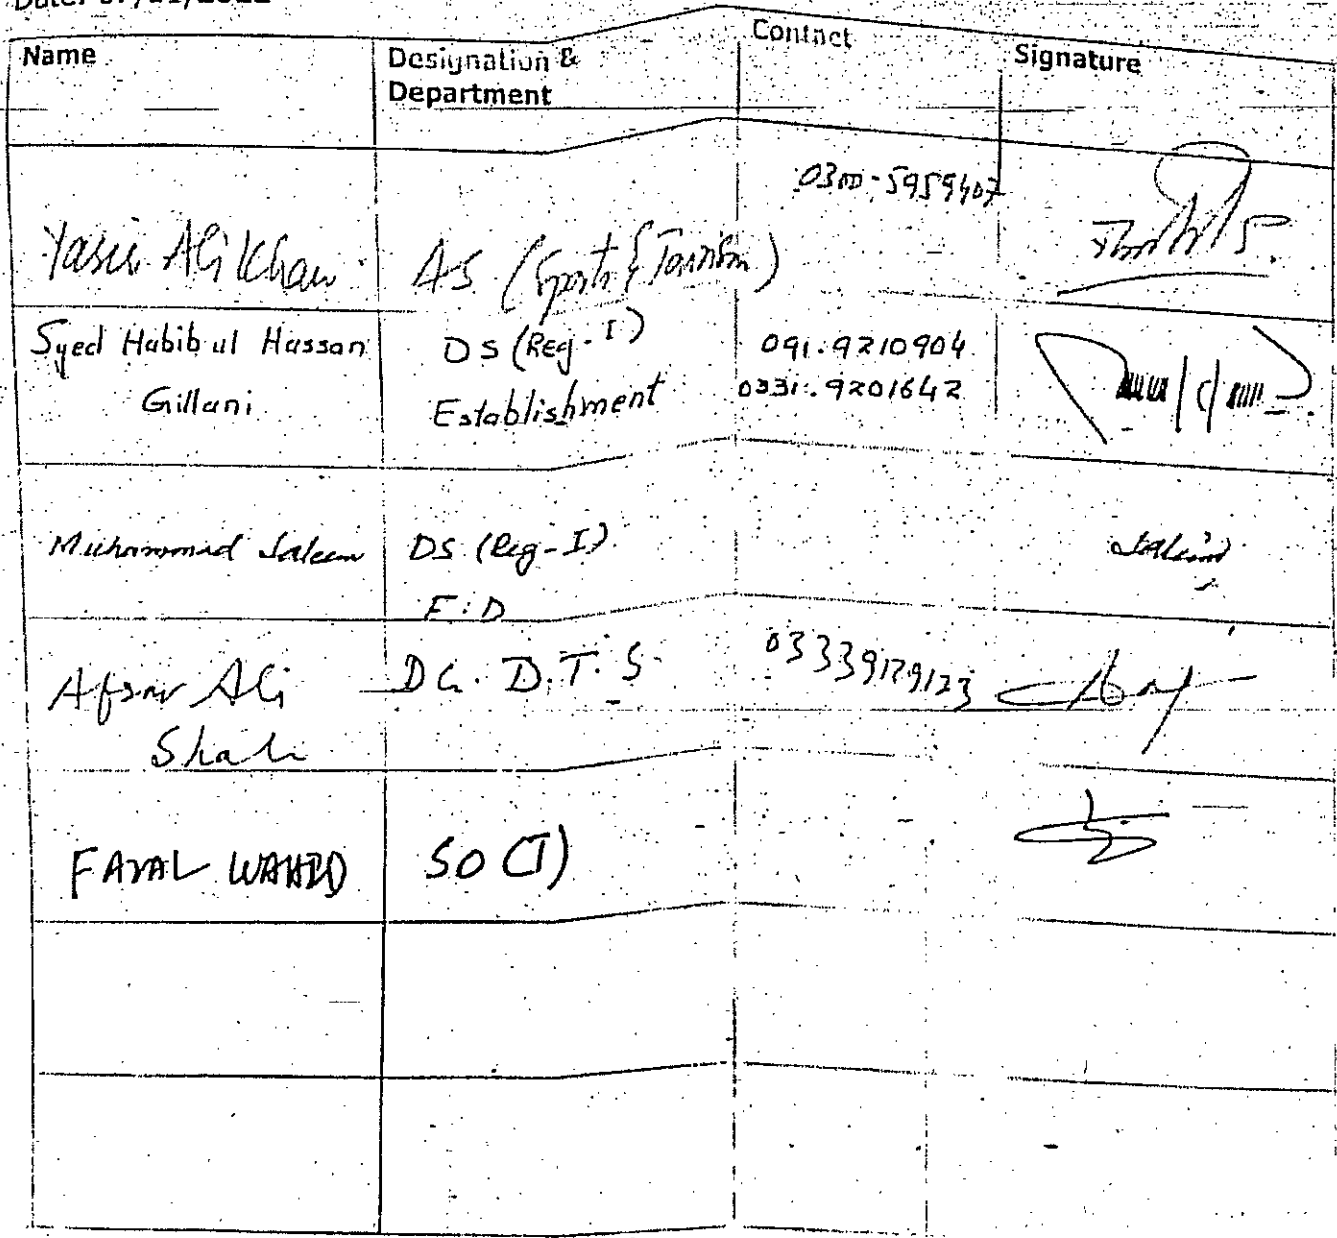 Name
Designation &
Department
Contact
Signature
0300-5959407
Yasir Ali Khan
AS (Sports & Tourism)
Syed Habib ul Hassan
Gillani
DS (Reg-I)
Establishment
091-9210904
0331-9201642
Muhammad Saleem
DS (Reg-I)
F.D
Saleem
Afsar Ali
Shah
DG. D.T.S.
03339129123
FAZAL WAHID
SO (T)